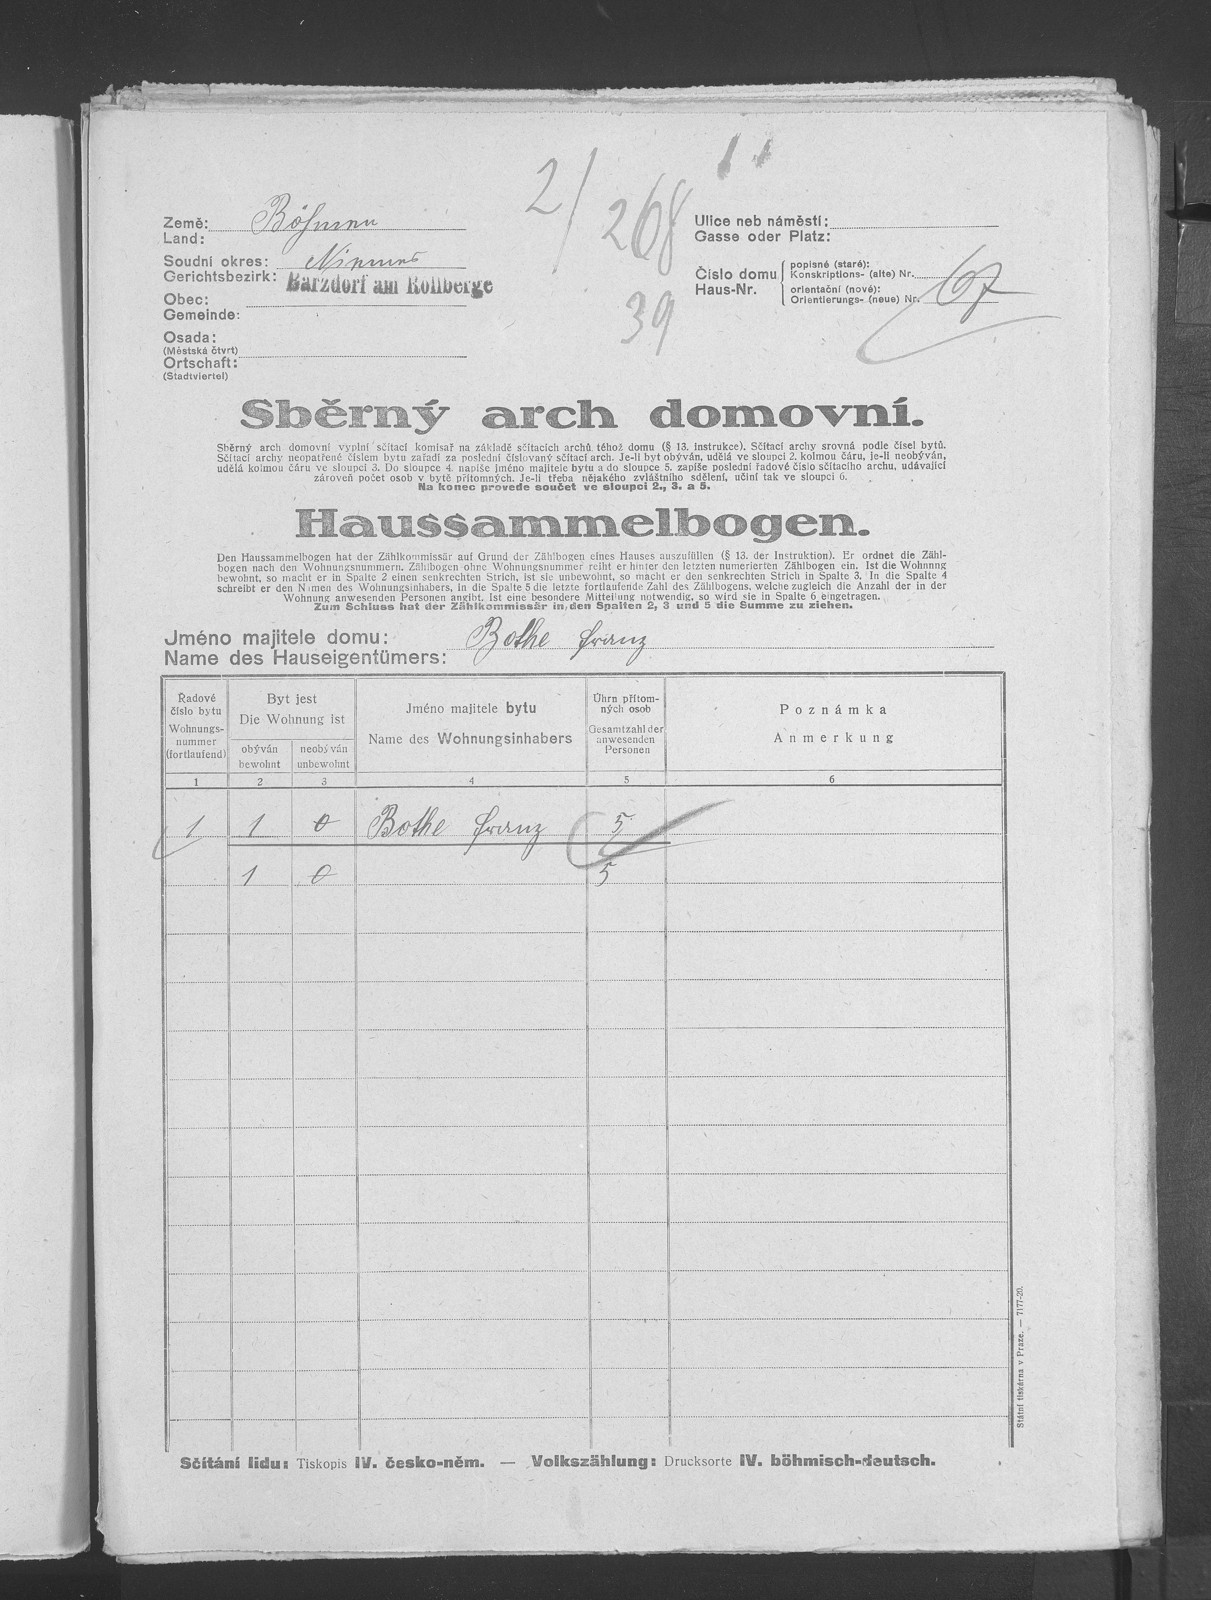 2/ 268
39
Země: Böhmen
Land:
Soudní okres: Niemes
Gerichtsbezirk:
Barzdorf am Rollberge
Obec:
Gemeinde:
Osada:
(Městská čtvrt)
Ortschaft:
(Stadtviertel)
Ulice neb náměstí:
Gasse oder Platz:
Číslo domu
Haus-Nr.
popisné (staré):
Konskriptions- (alte) Nr.
orientační (nové):
Orientierungs- (neue) Nr.
67
Sběrný arch domovní.
Sběrný arch domovní vyplní sčítací komisař na základě sčítacích archů téhož domu (§ 13. instrukce). Sčítací archy srovná podle čísel bytů.
Sčítací archy neopatřené číslem bytu zařadí za poslední číslovaný sčítací arch. Je-li byt obýván, udělá ve sloupci 2. kolmou čáru, je-li neobýván,
udělá kolmou čáru ve sloupci 3. Do sloupce 4. napíše jméno majitele bytu a do sloupce 5. zapíše poslední řadové číslo sčítacího archu, udávající
zároveň počet osob v bytě přítomných. Je-li třeba nějakého zvláštního sdělení, učiní tak ve sloupci 6.
Na konec provede součet ve sloupci 2., 3. a 5.
Haussammelbogen.
Den Haussammelbogen hat der Zählkommissär auf Grund der Zählbogen eines Hauses auszufüllen (§ 13. der Instruktion). Er ordnet die Zähl-
bogen nach den Wohnungsnummern. Zählbogen ohne Wohnungsnummer reiht er hinter den letzten numerierten Zählbogen ein. Ist die Wohnnng
bewohnt, so macht er in Spalte 2 einen senkrechten Strich, ist sie unbewohnt, so macht er den senkrechten Strich in Spalte 3. In die Spalte 4
schreibt er den Namen des Wohnungsinhabers, in die Spalte 5 die letzte fortlaufende Zahl des Zählbogens, welche zugleich die Anzahl der in der
Wohnung anwesenden Personen angibt. Ist eine besondere Mitteilung notwendig, so wird sie in Spalte 6 eingetragen.
Zum Schluss hat der Zählkommissär in den Spalten 2, 3 und 5 die Summe zu ziehen.
Jméno majitele domu: Bothe Franz
Name des Hauseigentümers:
Řadové
číslo bytu
Wohnungs-
nummer
(fortlaufend)
Byt jest
Die Wohnung ist
obýván
bewohnt
neobýván
unbewohnt
Jméno majitele bytu
Name des Wohnungsinhabers
Úhrn přítom-
ných osob
Gesamtzahl der
anwesenden
Personen
Poznámka
Anmerkung
1 2 3 4 5 6
1 1 0 Bothe Franz 5
1 0 5
Sčítání lidu: Tiskopis IV. česko-něm. — Volkszählung: Drucksorte IV. böhmisch-deutsch.
Státní tiskárna v Praze. — 7177-20.